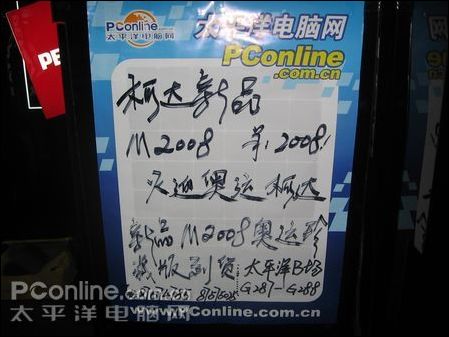 PConline
.com.cn
太平洋电脑网
太平洋电脑网
PConline
.com.cn
PE
柯达新品
M2008 羊:2008!
又迎奥运 柯达
新品M2008奥运珍
藏版到货 太平洋B场
G287-G288
PConline.com.cn
太平洋电脑网
www.PConline.com.cn